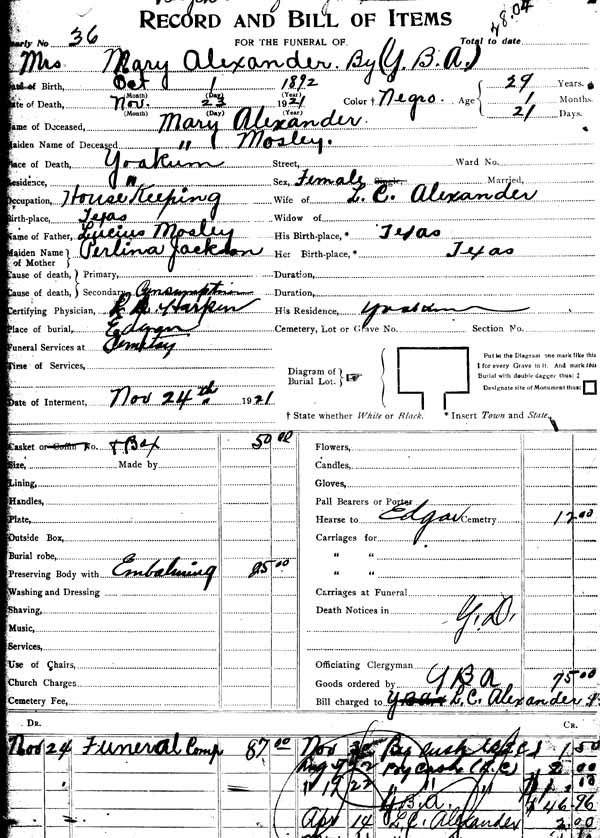 RECORD AND BILL OF ITEMS
48.04
Yearly No 36 FOR THE FUNERAL OF Total to date
Mrs Mary Alexander. By (Y. B. A.)
Date of Birth, Oct 1 1892 29 Years.
(Month) (Day) (Year)
Date of Death, Nov. 23 1921 Color † Negro. Age 1 Months.
(Month) (Day) (Year) 21 Days.
Name of Deceased, Mary Alexander.
Maiden Name of Deceased " Mosley.
Place of Death, Yoakum Street, Ward No.
Residence, " Sex, Female Single, Married,
Occupation, House Keeping Wife of L. C. Alexander
Birth-place, Texas Widow of
Name of Father, Lucius Mosley His Birth-place, * Texas
Maiden Name of Mother Perlina Jackson Her Birth-place, * Texas
Cause of death, Primary, Duration,
Cause of death, Secondary Consumption Duration,
Certifying Physician, Harper His Residence, Yoakum
Place of burial, Edgar Cemetery, Lot or Grave No. Section No.
Funeral Services at Cemetry
Time of Services,
Diagram of Burial Lot.
Put in the Diagram one mark like this
‡ for every Grave in it. And mark this
Burial with double dagger thus: ‡
Designate site of Monument thus:
Date of Interment, Nov 24th 1921
† State whether White or Black. * Insert Town and State.
Casket or Coffin No. & Box 50 00 Flowers,
Size, Made by Candles,
Lining, Gloves,
Handles, Pall Bearers or Porter
Plate, Hearse to Edgar Cemetry 12 00
Outside Box, Carriages for
Burial robe, " "
Preserving Body with Embalming 25 00 " "
Washing and Dressing Carriages at Funeral
Shaving, Death Notices in
Music, Y. D.
Services,
Use of Chairs, Officiating Clergyman
Church Charges Goods ordered by Y B A 75 00
Cemetery Fee, Bill charged to L. C. Alexander
DR. CR.
Nov 24 Funeral Comp 87 00 Nov 30 By Cash 1 50
Aug 9 22 By Cash (L. C.) 2 00
" 19 22
Y. B. A. $46.96
Apr 14 L. C. Alexander 2.00